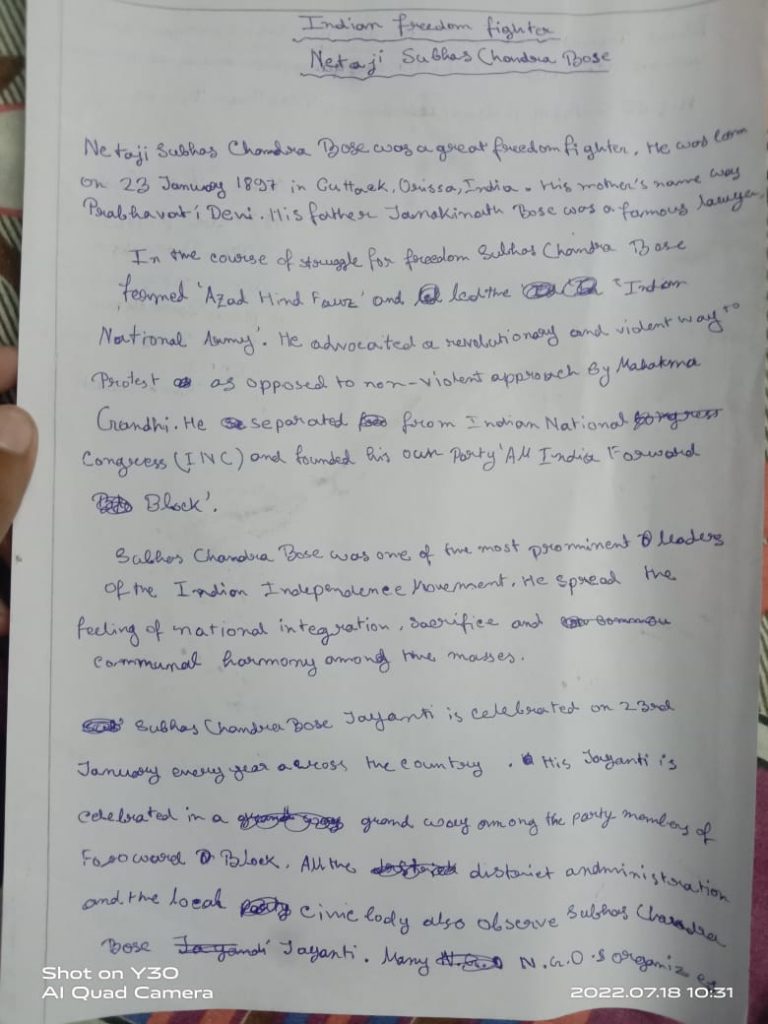 Indian freedom fighter
Netaji Subhas Chandra Bose
Netaji Subhas Chandra Bose was a great freedom fighter. He was born
on 23 January 1897 in Cuttack, Orissa, India. His mother's name was
Prabhavati Devi. His father Janakinath Bose was a famous lawyer.
In the course of struggle for freedom Subhas Chandra Bose
formed 'Azad Hind Fauz' and led the 'Indian
National Army'. He advocated a revolutionary and violent way to
Protest as opposed to non-violent approach by Mahatma
Gandhi. He separated from Indian National congress
Congress (INC) and founded his own Party 'All India Forward
Block'.
Subhas Chandra Bose was one of the most prominent leaders
of the Indian Independence Movement. He spread the
feeling of national integration, sacrifice and
communal harmony among the masses.
Subhas Chandra Bose Jayanti is celebrated on 23rd
January every year across the country. His Jayanti is
celebrated in a grand way among the party members of
Forward Block. All the district andministration
and the local civic body also observe Subhas Chandra
Bose Jayanti. Many N.G.O.s organizes
Shot on Y30
AI Quad Camera
2022.07.18 10:31